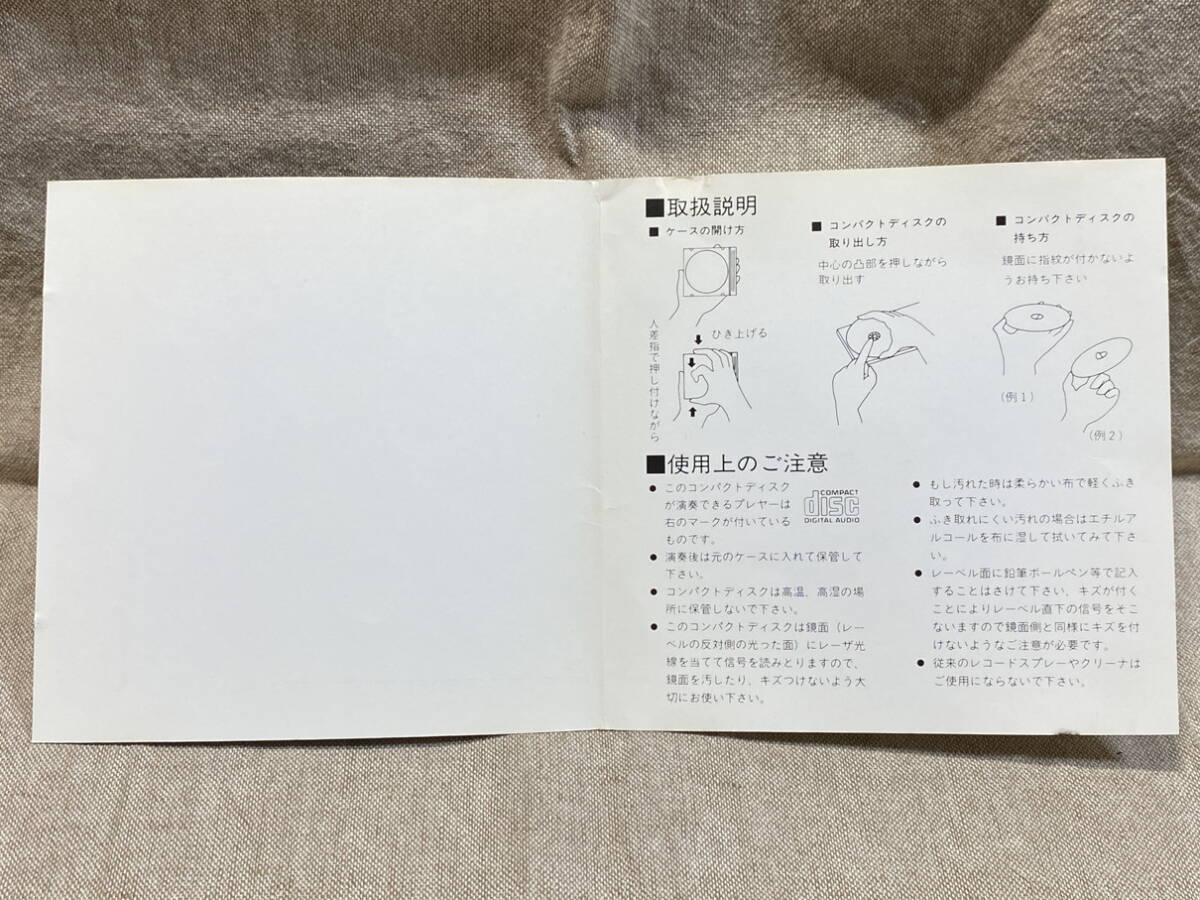 ■取扱説明
■ ケースの開け方
人差指で押し付けながら
ひき上げる
■ コンパクトディスクの
取り出し方
中心の凸部を押しながら
取り出す
■ コンパクトディスクの
持ち方
鏡面に指紋が付かないよ
うお持ち下さい
(例1)
(例2)
■使用上のご注意
● このコンパクトディスク
が演奏できるプレヤーは
右のマークが付いている
ものです。
COMPACT
disc
DIGITAL AUDIO
● 演奏後は元のケースに入れて保管して
下さい。
● コンパクトディスクは高温、高湿の場
所に保管しないで下さい。
● このコンパクトディスクは鏡面（レー
ベルの反対側の光った面）にレーザ光
線を当てて信号を読みとりますので、
鏡面を汚したり、キズつけないよう大
切にお使い下さい。
● もし汚れた時は柔らかい布で軽くふき
取って下さい。
● ふき取れにくい汚れの場合はエチルア
ルコールを布に湿して拭いてみて下さ
い。
● レーベル面に鉛筆ボールペン等で記入
することはさけて下さい、キズが付く
ことによりレーベル直下の信号をそこ
ないますので鏡面側と同様にキズを付
けないようなご注意が必要です。
● 従来のレコードスプレーやクリーナは
ご使用にならないで下さい。